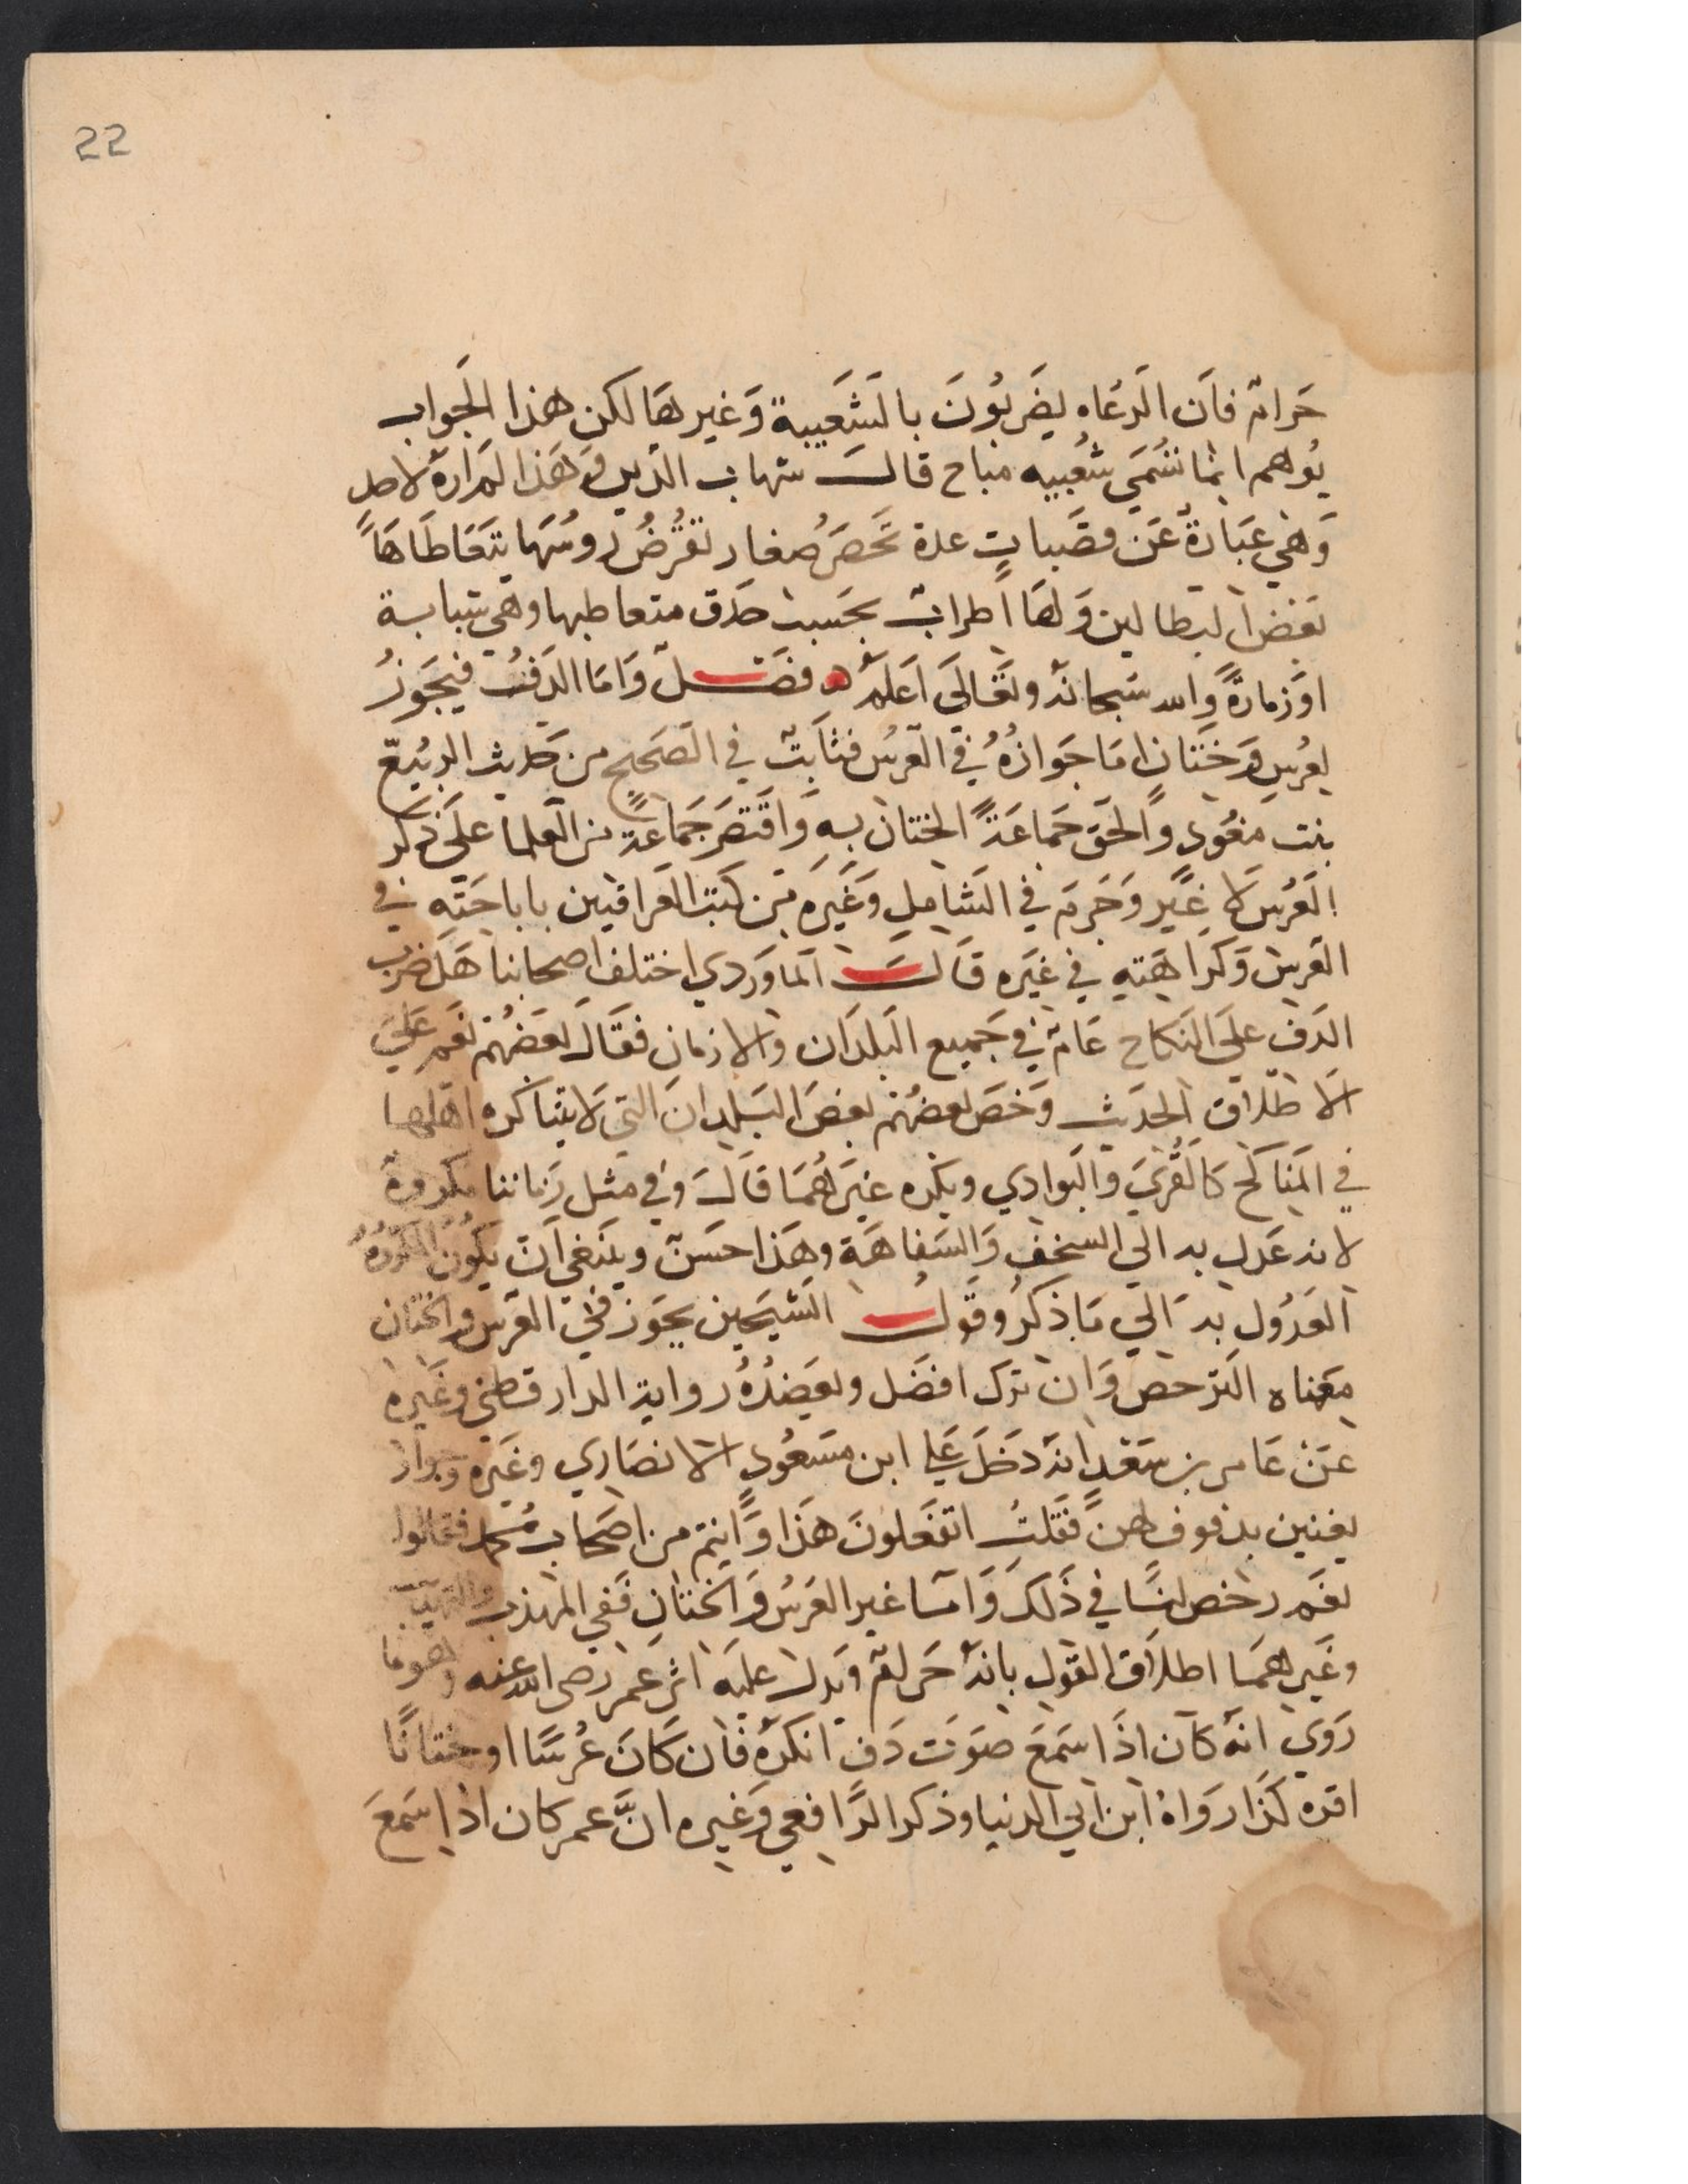 22
حَرام فاَن الَرعُاه يضَربُونَ بالشَعَيبية وَغيرهَا لكن هذا الجَواب
يُوهم انما تسُمَي شعُيبيه مباح قالــ شهاب الدين وَهَذا لم اره لاحد
وَهي عَبَارةٌ عَن قصَبات عدة صغار تقرضُ روسُهَا يتَعَاطَاهَا
بعَض البطالين وَلهَا اطرابٌ بحَسب حذق متعاطيها وهي شبابة
اوَزمارةً والله سبحانه وتعَالَى اَعلمُ فصَــل وَامَا الدَف فيَجَوزُ
لعرُس وَختَان امَا جَوازهُ في العَرس فثابَت في الصَحيح من حَديث الربُيّع
بنت معُود والحَق جَماعَةً الختان به وَاقتصَر جَماعة من العلما علَى ذكر
العَرُس لا غيَر وَجَزم في الشَامل وَغيَره من كتب العَراقيين باباحَته في
العَرس وَكراهَته في غيَره قَالــَ الماوَردي اختلف اصحابنا هَل ضرب
الدَف علَى النكاح عَام في جَميع البلدَان والازمان فقاَل بعَضهُم نعَم علَي
الاَطلاق الحدَيث وَخصَ بعضهُم بعضَ البَلدانَ التي لاَ يتناكره اهَلها
في المنَاكح كالقُرَي والبَوادي ويكره غيَرهُمَا قاَل وَفي مثل زَماننا مكروهٌ
لانه عَدل به الَى السخف وَالسَفاهَة وهَذا حسَن وينبَغي اَن يكوُن المكرُوهُ
العَدُول به اَلي مَا ذكرُ وقَولــ الشيَخين يجَوز في العَرس والختان
معَناه الترخص وَان ترك افضَل ويعَضدُهُ رواية الدارقطني وغَيره
عَن عَامر بن سَعَد انه دَخلَ عَلي ابن مسَعُود الانصَاري وغَيره وجوار
يغنين بدفوف لهن فقَلتُ اتفعَلونَ هَذا وَانتم من اصَحاب مُحمد فقالوا
نعَم رخص لنَا في ذَلكَ وَامَا غير العَرسُ وَالختان فَفي المهذب والتهذيب
وغَيرهمَا اطلاَق القول بانه حَرامٌ وَيدل علَيه اثر عَمر رضى الله عنه وهو ما
رَوي انه كاَن اذَا سَمَعَ صَوَت دَف انكَره فاَن كَانَ عُرسًا او ختانًا
اقره كَذَا رَوَاهُ ابن ابي الدنيا وذكر الرَافعي وَغيره انَّ عمر كان اذا سَمعَ